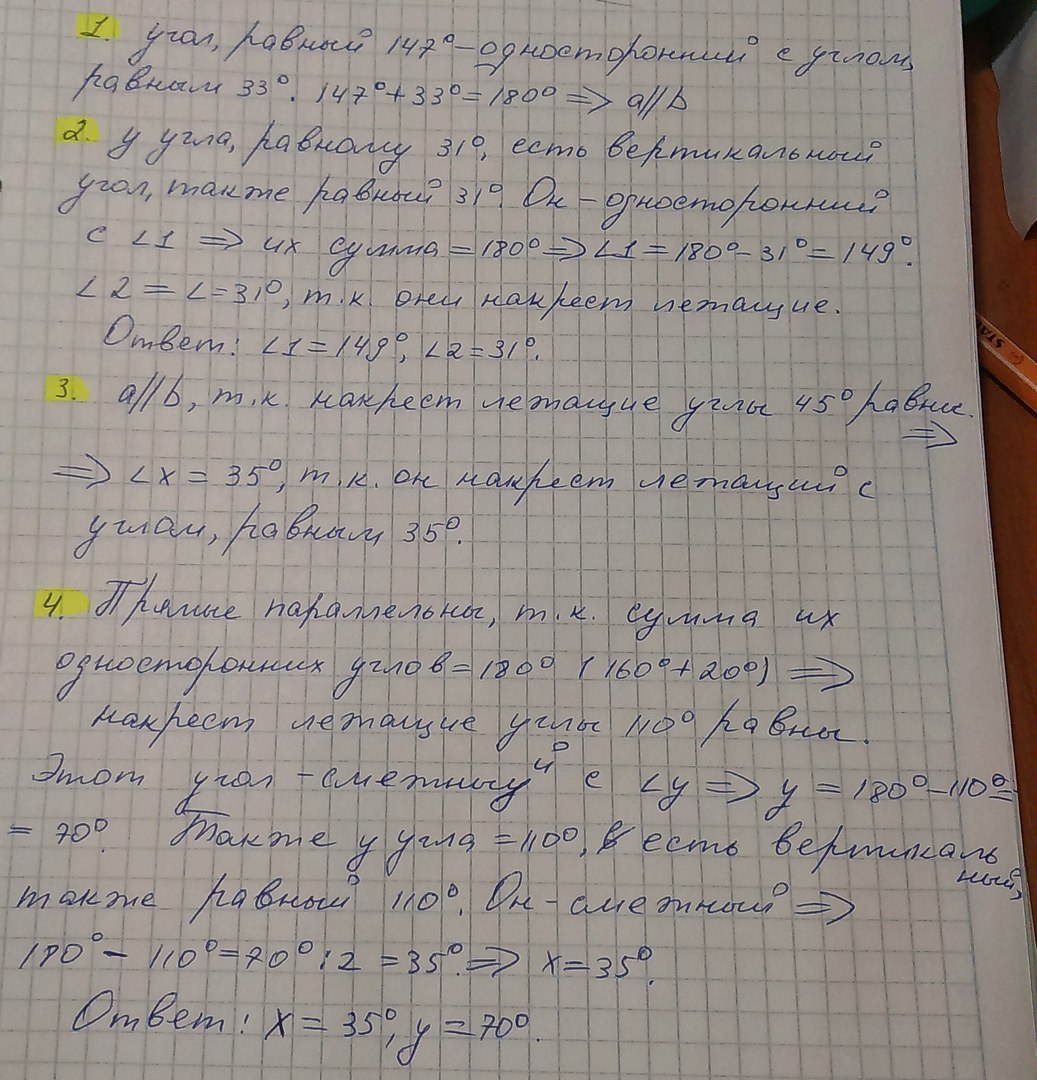 1. угол, равный 147° - односторонний с углом,
равным 33°. 147° + 33° = 180° => a//b
2. у угла, равному 31°, есть вертикальный
угол, также равный 31°. Он - односторонний
с ∠1 => их сумма = 180° => ∠1 = 180° - 31° = 149°.
∠2 = ∠ = 31°, т.к. они накрест лежащие.
Ответ: ∠1 = 149°, ∠2 = 31°.
3. a//b, т.к. накрест лежащие углы 45° равны.
=>
=> ∠x = 35°, т.к. он накрест лежащий с
углом, равным 35°.
4. Прямые параллельны, т.к. сумма их
односторонних углов = 180° (160° + 20°) =>
накрест лежащие углы 110° равны.
Этот угол - смежный с ∠y => y = 180° - 110° =
= 70°. Также у угла = 110°, есть вертикаль
ный,
также равный 110°. Он - смежный =>
180° - 110° = 70° : 2 = 35° => x = 35°.
Ответ: x = 35°, y = 70°.